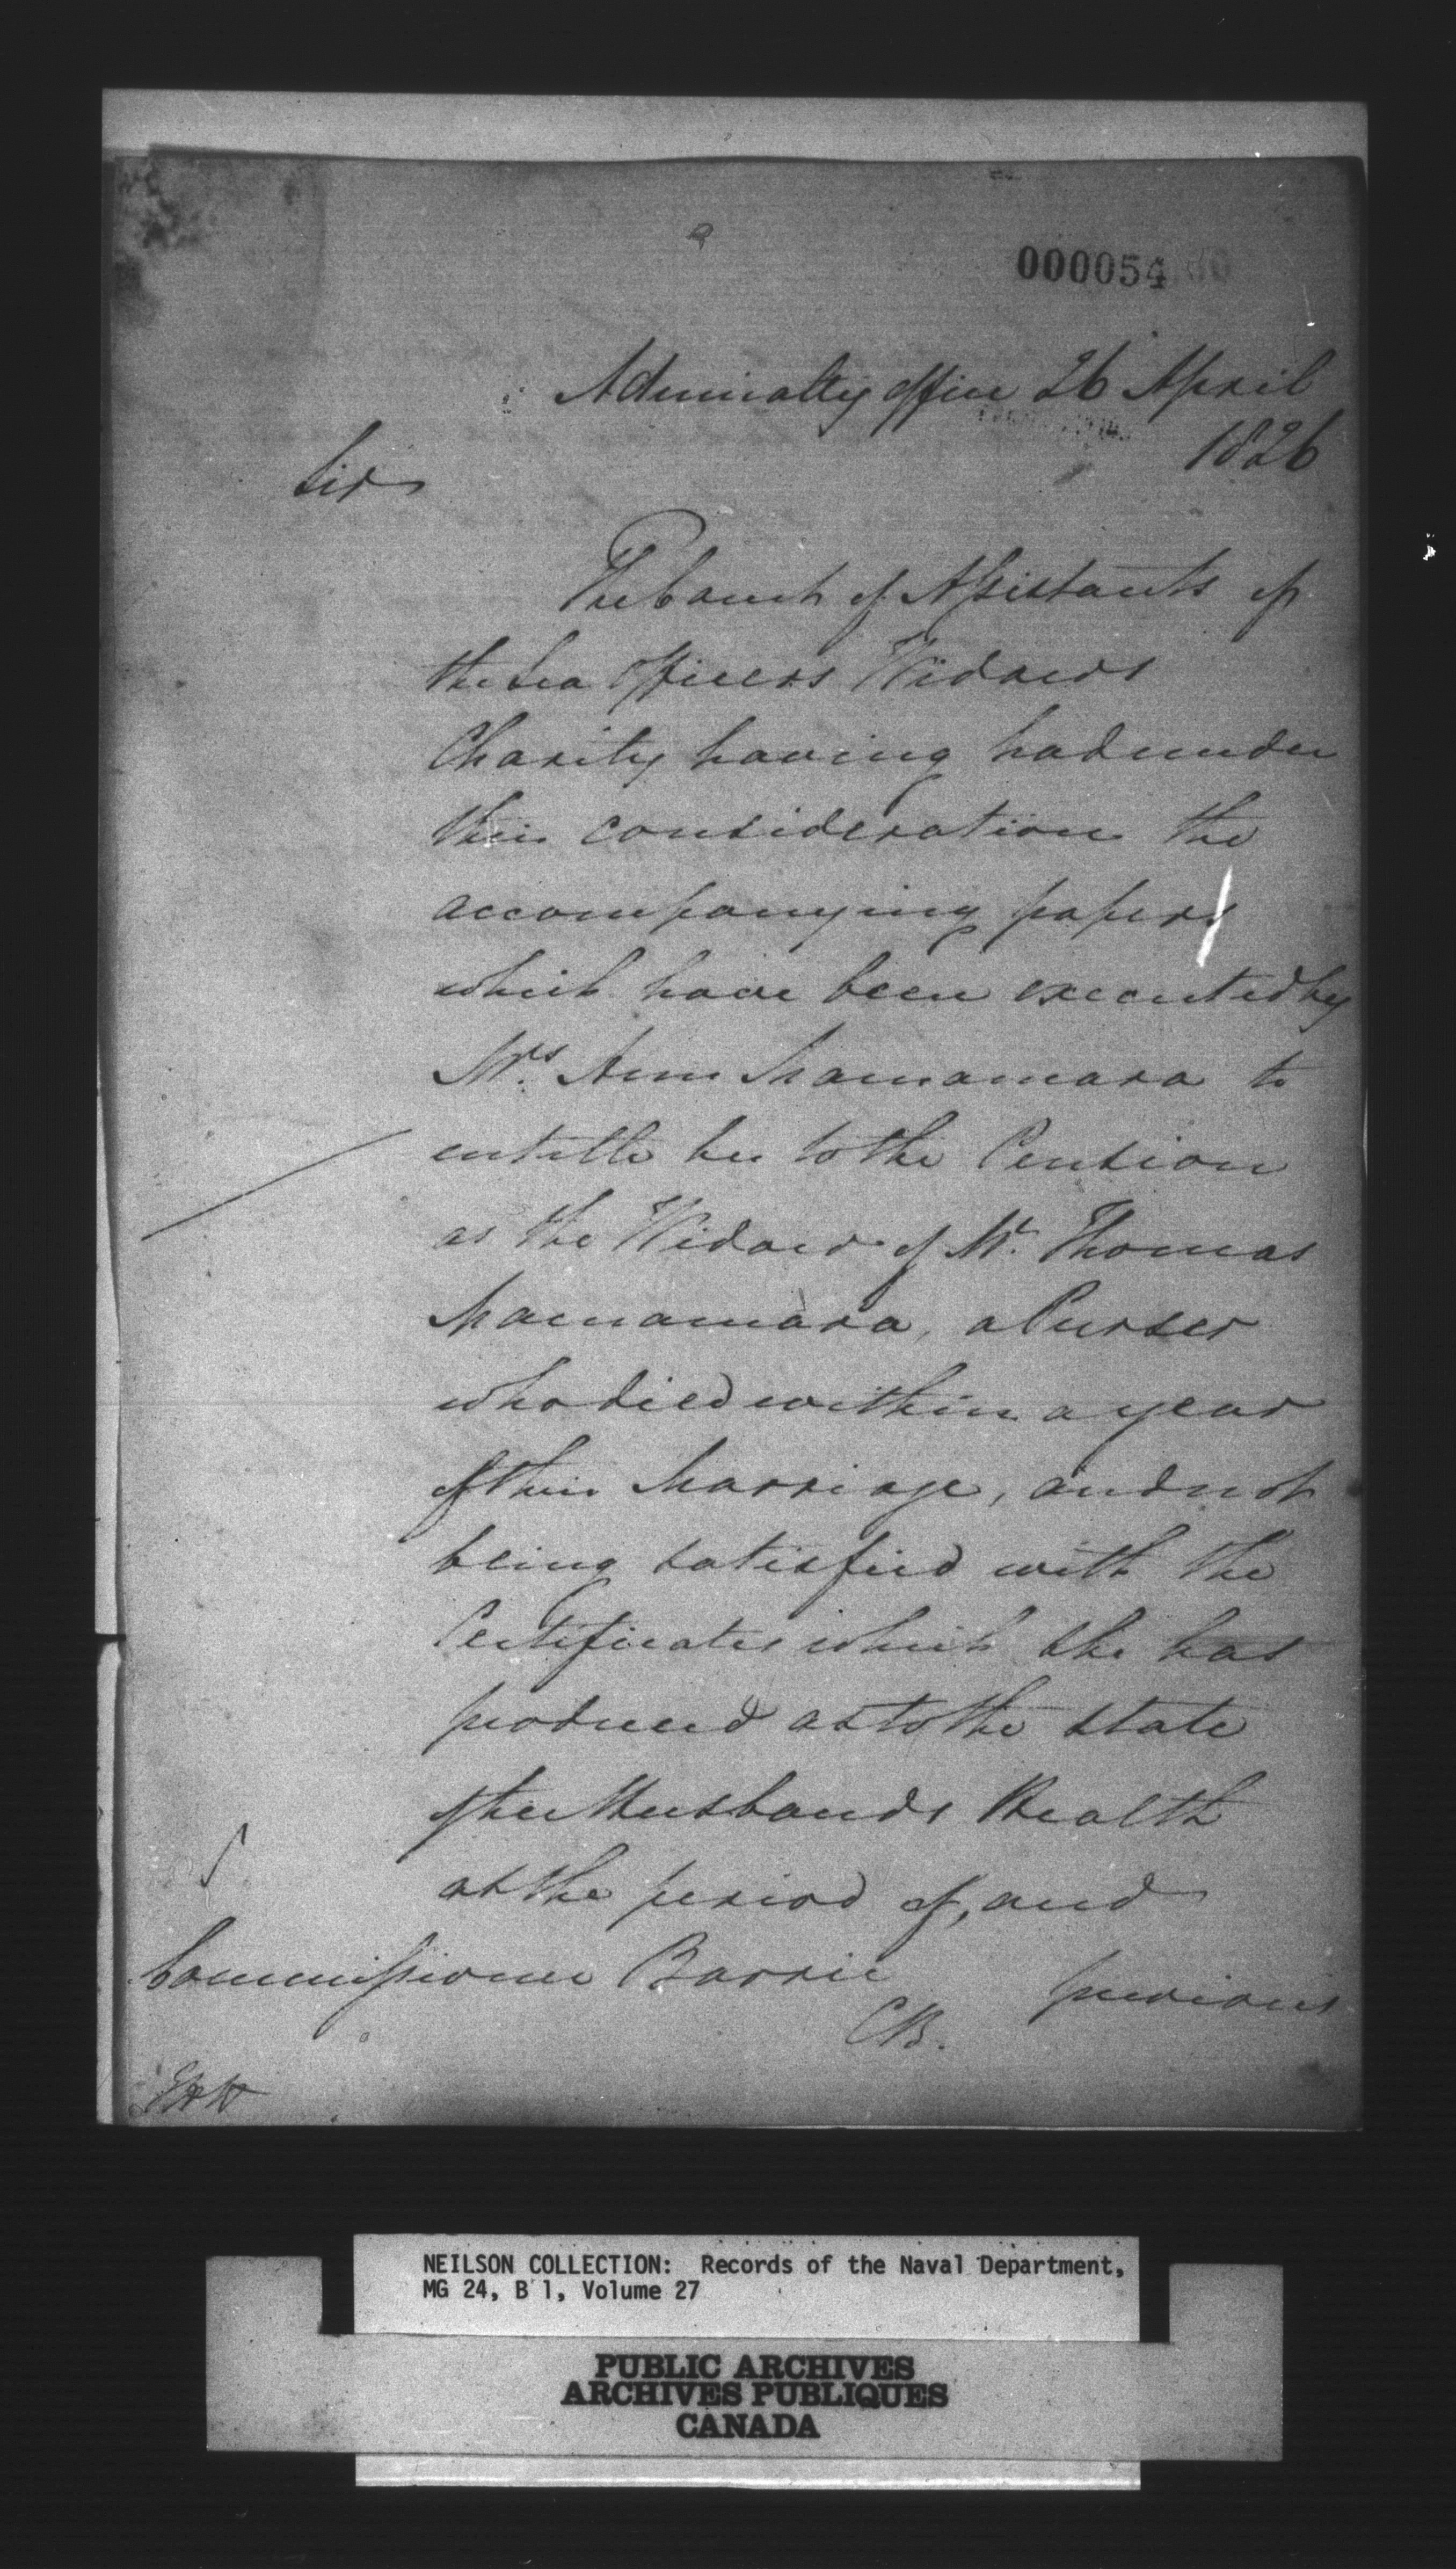 000054
Admiralty Office 26 April
1826
Sir
The Court of Assistants of
the Sea Officers Widows
Charity having had under
their consideration the
accompanying papers
which have been executed by
Mrs. Ann Macnamara to
entitle her to the Pension
as the Widow of Mr. Thomas
Macnamara, a Purser
who died within a year
of their Marriage, and not
being satisfied with the
Certificates which she has
produced as to the state
of her Husbands Health
at the period of, and
previous
Commissioner Barrie
CB.
NEILSON COLLECTION: Records of the Naval Department,
MG 24, B 1, Volume 27
PUBLIC ARCHIVES
ARCHIVES PUBLIQUES
CANADA